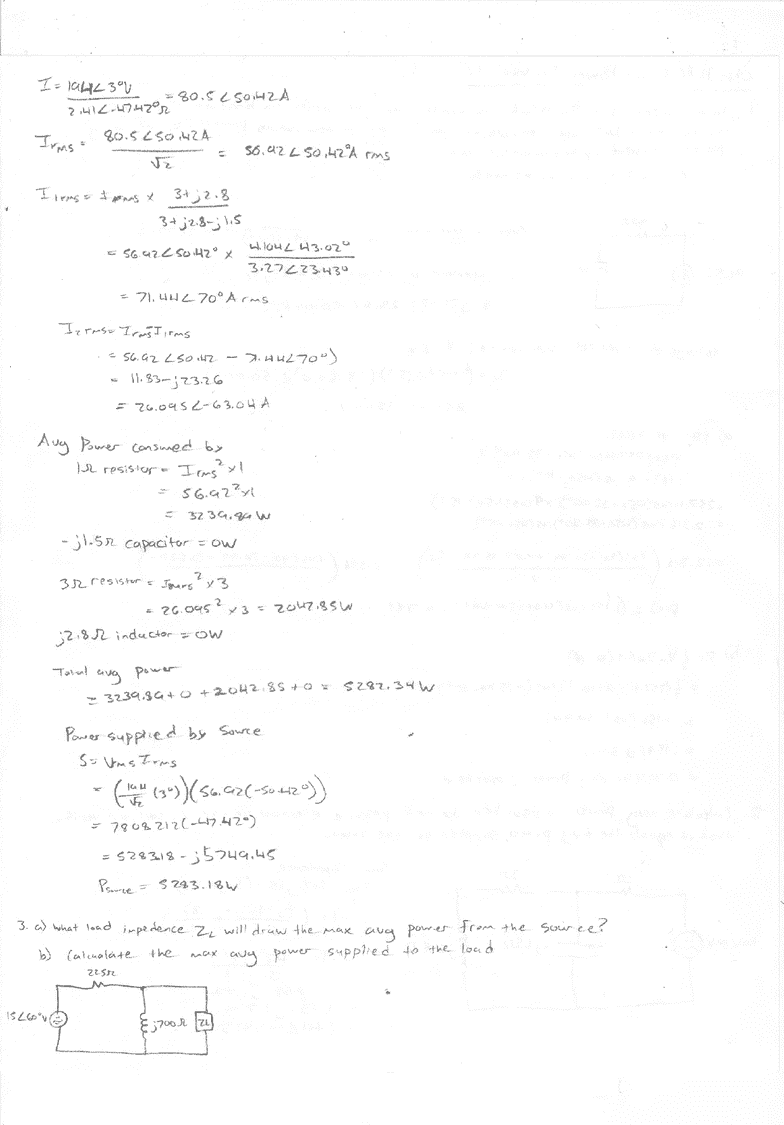 I = 194∠3°V / 2.41∠-47.42°Ω = 80.5∠50.42A
Irms = 80.5∠50.42A / √2 = 56.92∠50.42°A rms
I1rms = Irms x 3+j2.8 / 3+j2.8-j1.5
= 56.92∠50.42° x 4.104∠43.02° / 3.27∠23.43°
= 71.44∠70°A rms
I2rms = Irms - I1rms
= 56.92∠50.42 - 7.44∠70°)
= 11.83-j23.26
= 26.095∠-63.04A
Avg Power consumed by
1Ω resistor = Irms² x1
= 56.92² x1
= 3239.89W
-j1.5Ω capacitor = 0W
3Ω resistor = I2rms² x3
= 26.095² x3 = 2042.85W
j2.8Ω inductor = 0W
Total avg power
= 3239.89+0+2042.85+0 = 5282.34W
Power supplied by Source
S = Vrms Irms
= (194/√2 (3°))(56.92(-50.42°))
= 7808.212(-47.42°)
= 5283.18-j5749.45
Psource = 5283.18W
3. a) what load impedence ZL will draw the max avg power from the source?
b) Calculate the max avg power supplied to the load
225Ω
15∠60°V
j700Ω
ZL